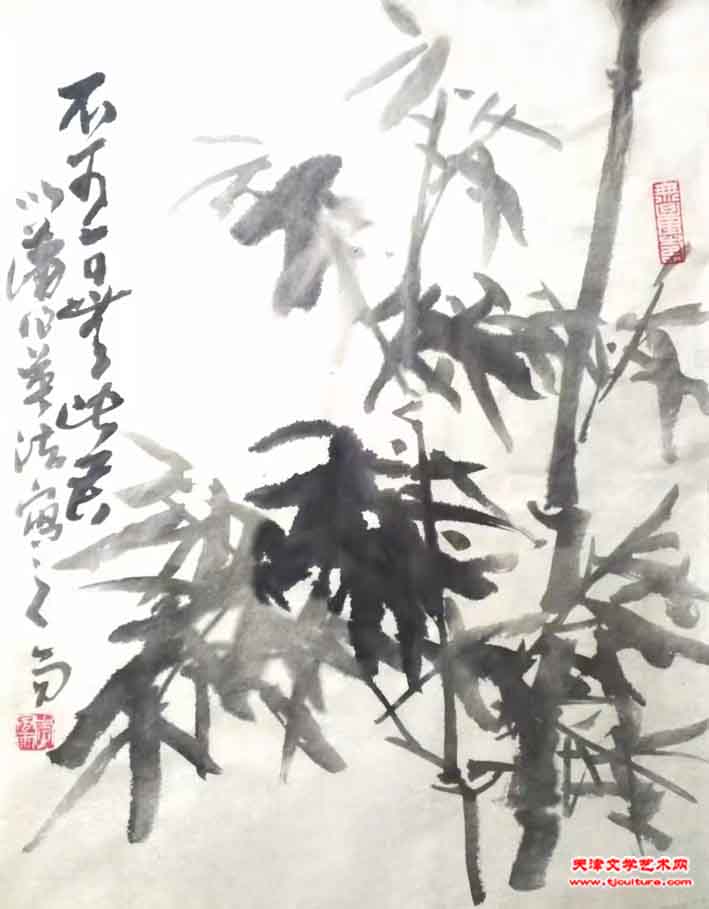 不可一日無此君
以蒲伯英法寫之
天津文学艺术网
www.tjculture.com